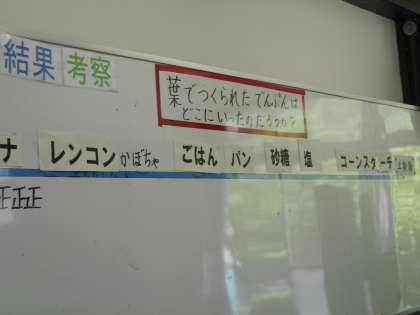 結果 考察
葉でつくられた でんぷんは
どこにいったのだろうか?
ナ レンコン かぼちゃ ごはん パン 砂糖 塩 コーンスターチ
正正正